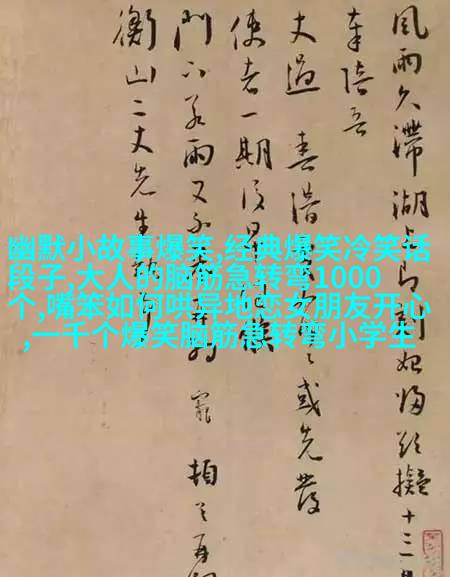 幽默小故事爆笑,经典爆笑冷笑话
段子,大人的脑筋急转弯1000
个,嘴笨如何哄异地恋女朋友开心
,一千个爆笑脑筋急转弯小学生
風雨久滯湖上即刻始歸擬十三
奉陪吾
丈過 或先發
使者一期後
門下若雨又不 寵 頓首再
衡山二丈先生